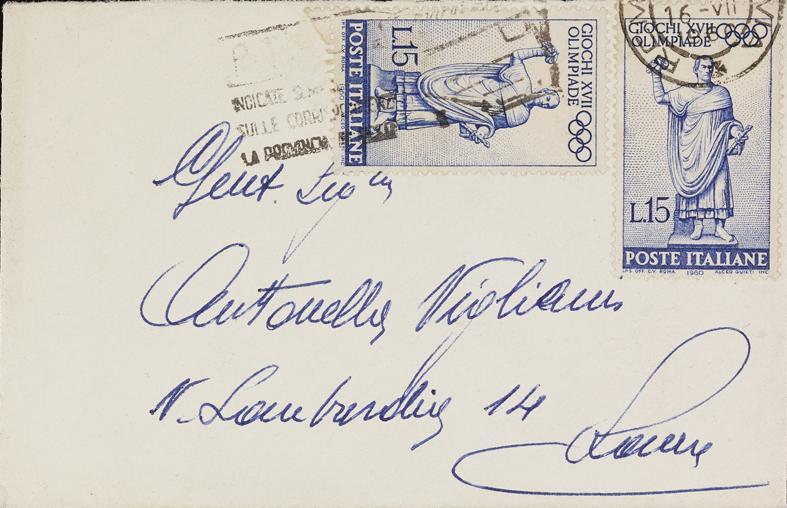 INDICATE SEMPRE
SULLE CORRISPONDENZE
LA PROVINCIA
POSTE ITALIANE
L.15
GIOCHI XVII
OLIMPIADE
I.P.S. OFF. C.V. ROMA 1960
16 -VII
GIOCHI XVII
OLIMPIADE
L.15
POSTE ITALIANE
I.P.S. OFF. C.V. ROMA 1960 ALCEO QUIETI INC.
Gent. Sig.na
Antonella Vigliano
V. Lombardia 14
Roma